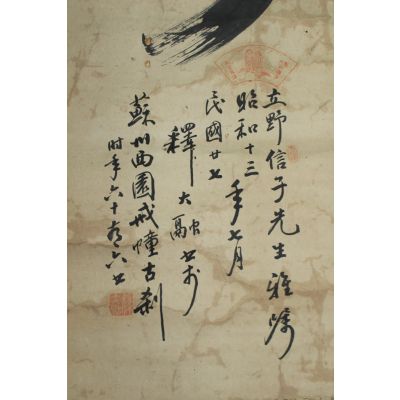 立野信子先生雅嘱
昭和十三
民國廿七
年七月
釋大融书於
蘇州西園戒幢古刹
时年六十有六也